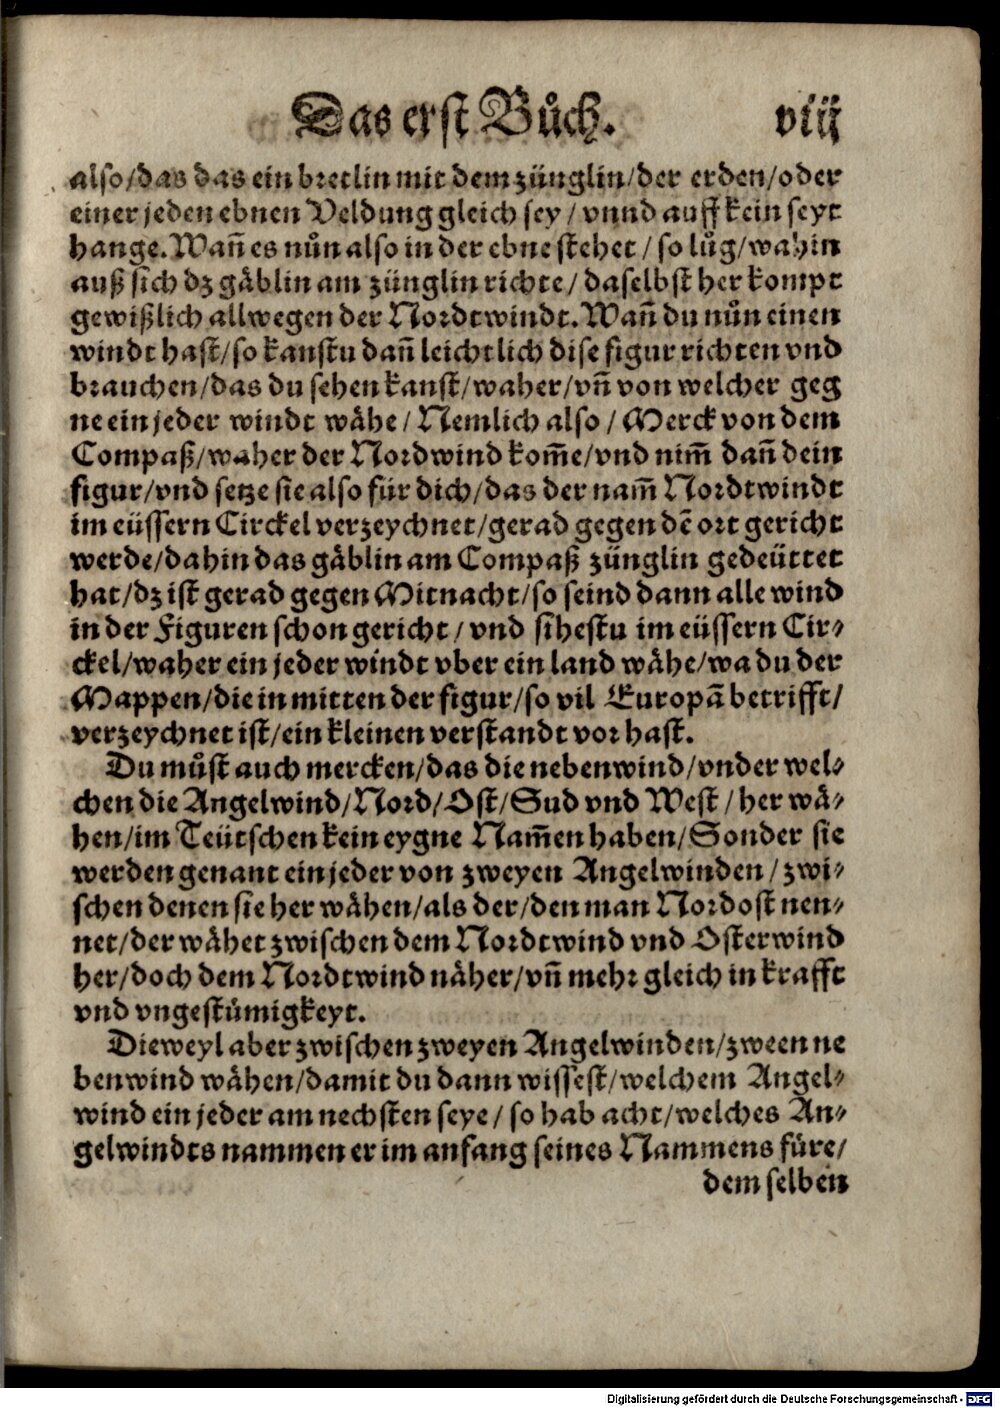 Das erst Bůch. viij
also/das das ein bretlin mit dem zünglin/der erden/oder
einer jeden ebnen Veldung gleich sey/vnnd auff kein seyt
hange. Wañ es nůn also in der ebne stehet/so lůg/wahin
auß sich dz gäblin am zünglin richte/daselbst her kompt
gewißlich allwegen der Nordtwindt. Wañ du nůn einen
windt hast/so kanstu dañ leichtlich dise figur richten vnd
brauchen/das du sehen kanst/waher/vñ von welcher geg
ne ein jeder windt wähe/Nemlich also/Merck von dem
Compaß/waher der Nordwind kom̃e/vnd nim̃ dañ dein
figur/vnd setze sie also für dich/das der nam̃ Nordtwindt
im eüssern Circkel verzeychnet/gerad gegen dẽ ort gericht
werde/dahin das gäblin am Compaß zünglin gedeüttet
hat/dz ist gerad gegen Mitnacht/so seind dann alle wind
in der Figuren schon gericht/vnd sihestu im eüssern Cir⸗
ckel/waher ein jeder windt vber ein land wähe/wa du der
Mappen/die in mitten der figur/so vil Europã betrifft/
verzeychnet ist/ein kleinen verstandt vor hast.
Du můst auch mercken/das die nebenwind/vnder wel⸗
chen die Angelwind/Nord/Ost/Sud vnd West/her wä⸗
hen/im Teütschen kein eygne Nam̃en haben/Sonder sie
werden genant ein jeder von zweyen Angelwinden/zwi⸗
schen denen sie her wähen/als der/den man Nordost nen⸗
net/der wähet zwischen dem Nordtwind vnd Osterwind
her/doch dem Nordtwind näher/vñ mehr gleich in krafft
vnd vngestümigkeyt.
Dieweyl aber zwischen zweyen Angelwinden/zween ne
benwind wähen/damit du dann wissest/welchem Angel⸗
wind ein jeder am nechsten seye/so hab acht/welches An⸗
gelwindts nammen er im anfang seines Nammens füre/
dem selben
Digitalisierung gefördert durch die Deutsche Forschungsgemeinschaft - DFG